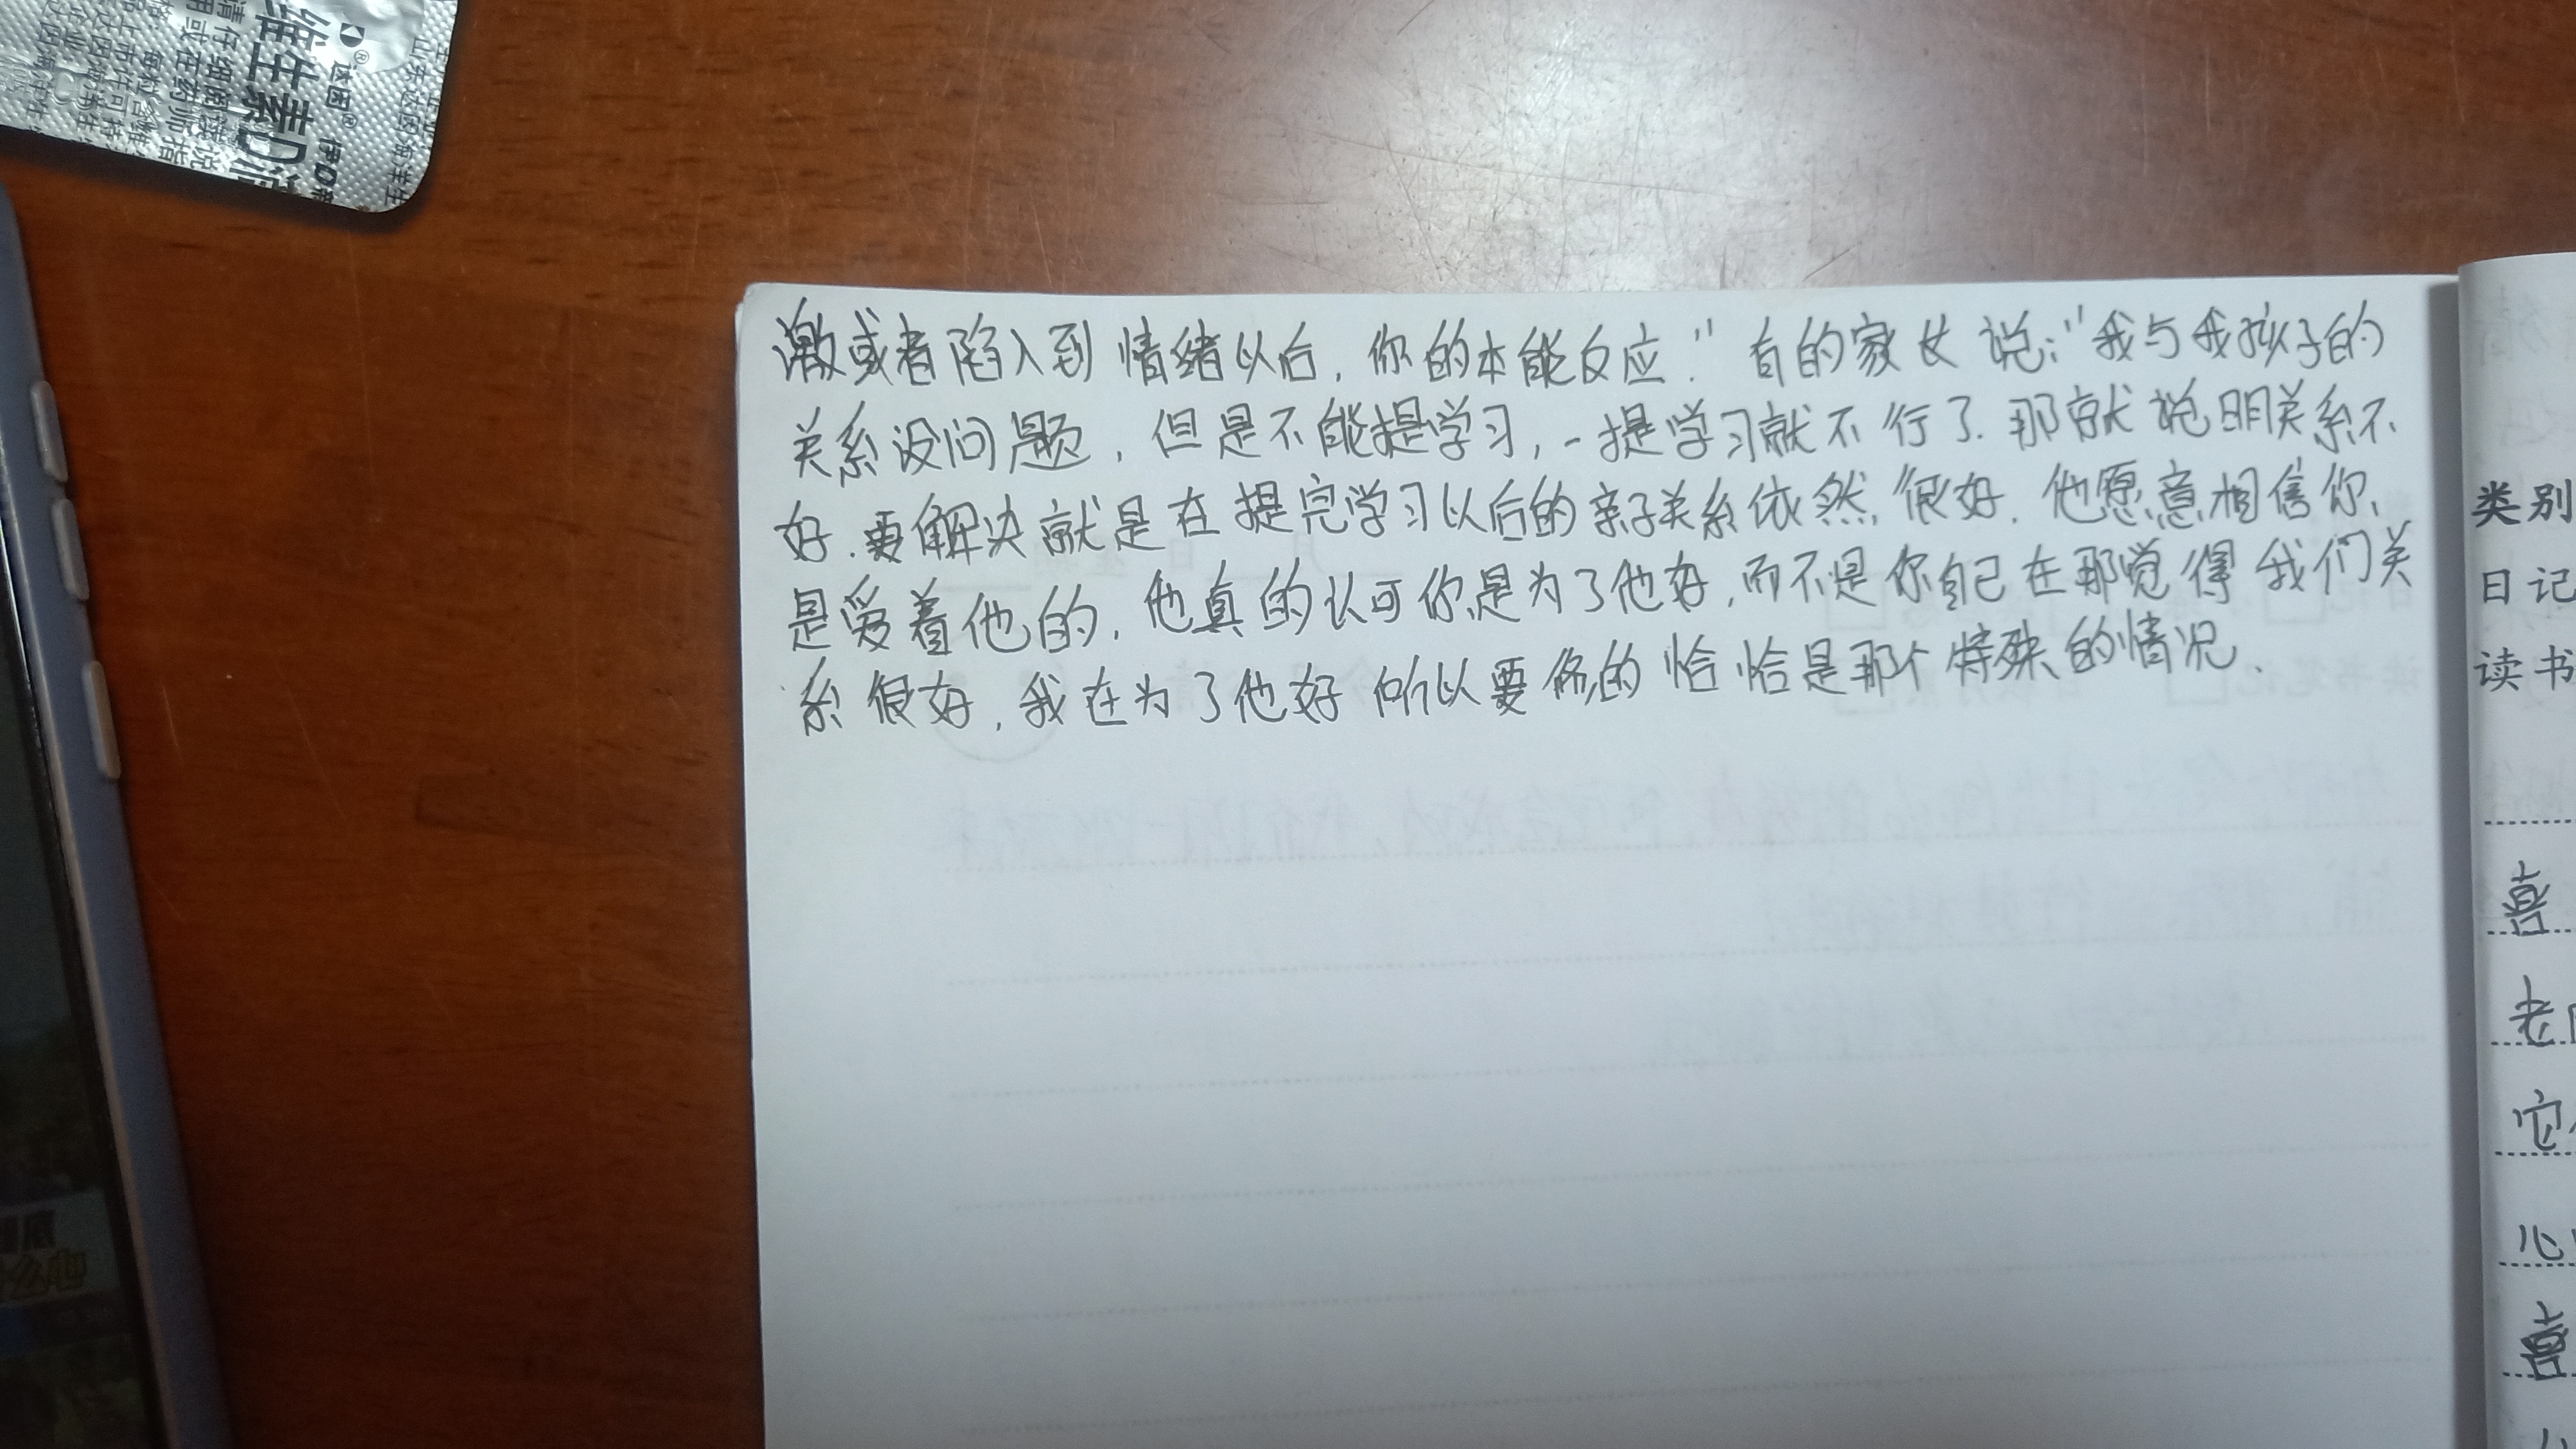 激或者陷入到情绪以后，你的本能反应．"有的家长说："我与我孩子的
关系没问题，但是不能提学习，一提学习就不行了．那就说明关系不
好．要解决就是在提完学习以后的亲子关系依然很好．他愿意相信你、
是爱着他的，他真的认可你是为了他好，而不是你自己在那觉得我们关
系很好，我在为了他好所以要你的恰恰是那个特殊的情况．
类别
日记
读书
喜
老
它
心
喜
维生素D滴
达因® 伊D新
请仔细阅读说
用或在药师指